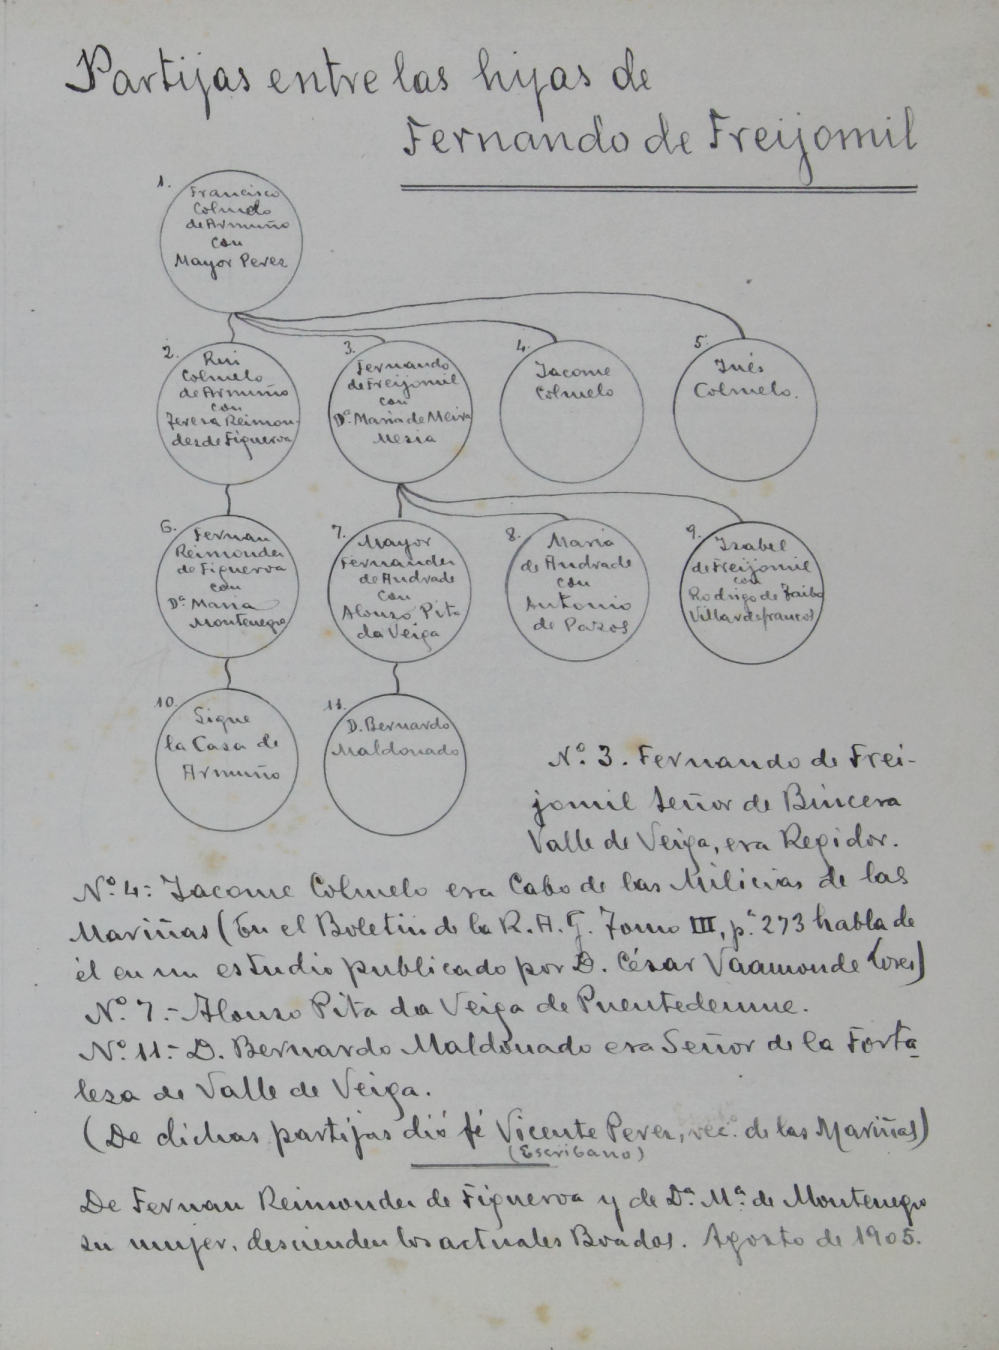 Partijas entre las hijas de
Fernando de Freijomil
1.
Francisco
Colmelo
de Armuño
con
Mayor Perez
2.
Rui
Colmelo
de Armuño
con
Teresa Reimon-
des de Figueroa
3.
Fernando
de Freijomil
con
Dª. Maria de Meira
Mesia
4.
Jacome
Colmelo
5.
Inés
Colmelo.
6.
Fernan
Reimondez
de Figueroa
con
Dª Maria
Montenegro
7.
Mayor
Fernandez
de Andrade
con
Alonso Pita
da Veiga
8.
Maria
de Andrade
con
Antonio
de Pazos
9.
Isabel
de Freijomil
con
Rodrigo de
Villardefrancos
10.
Sigue
la Casa de
Armuño
11.
D. Bernardo
Maldonado
Nº. 3. Fernando de Frei-
jomil Señor de
Valle de Veiga, era Regidor.
Nº 4.- Jacome Colmelo era Cabo de las Milicias de las
Mariñas (En el Boletin de la R. A. G. Tomo III, p.ª 273 habla de
él en un estudio publicado por D. César Vaamonde Lores)
Nº. 7.- Alonso Pita da Veiga de Puentedeume.
Nº. 11.- D. Bernardo Maldonado era Señor de la Forta
leza de Valle de Veiga.
(De dichas partijas dió fé Vicente Perez, vec.º de las Mariñas)
(Escribano)
De Fernan Reimondez de Figueroa y de Dª. Mª. de Montenegro
su mujer, descienden los actuales Boados. Agosto de 1905.